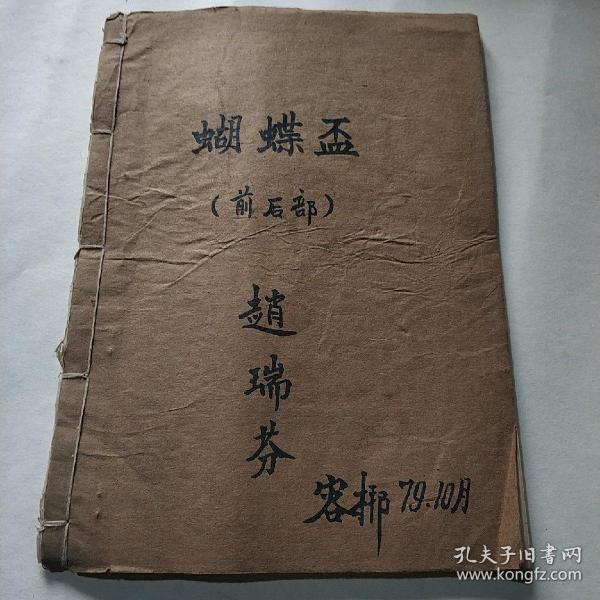 蝴蝶盃
(前后部)
趙瑞芬
容挷 79.10月
孔夫子旧書网
www.kongfz.com